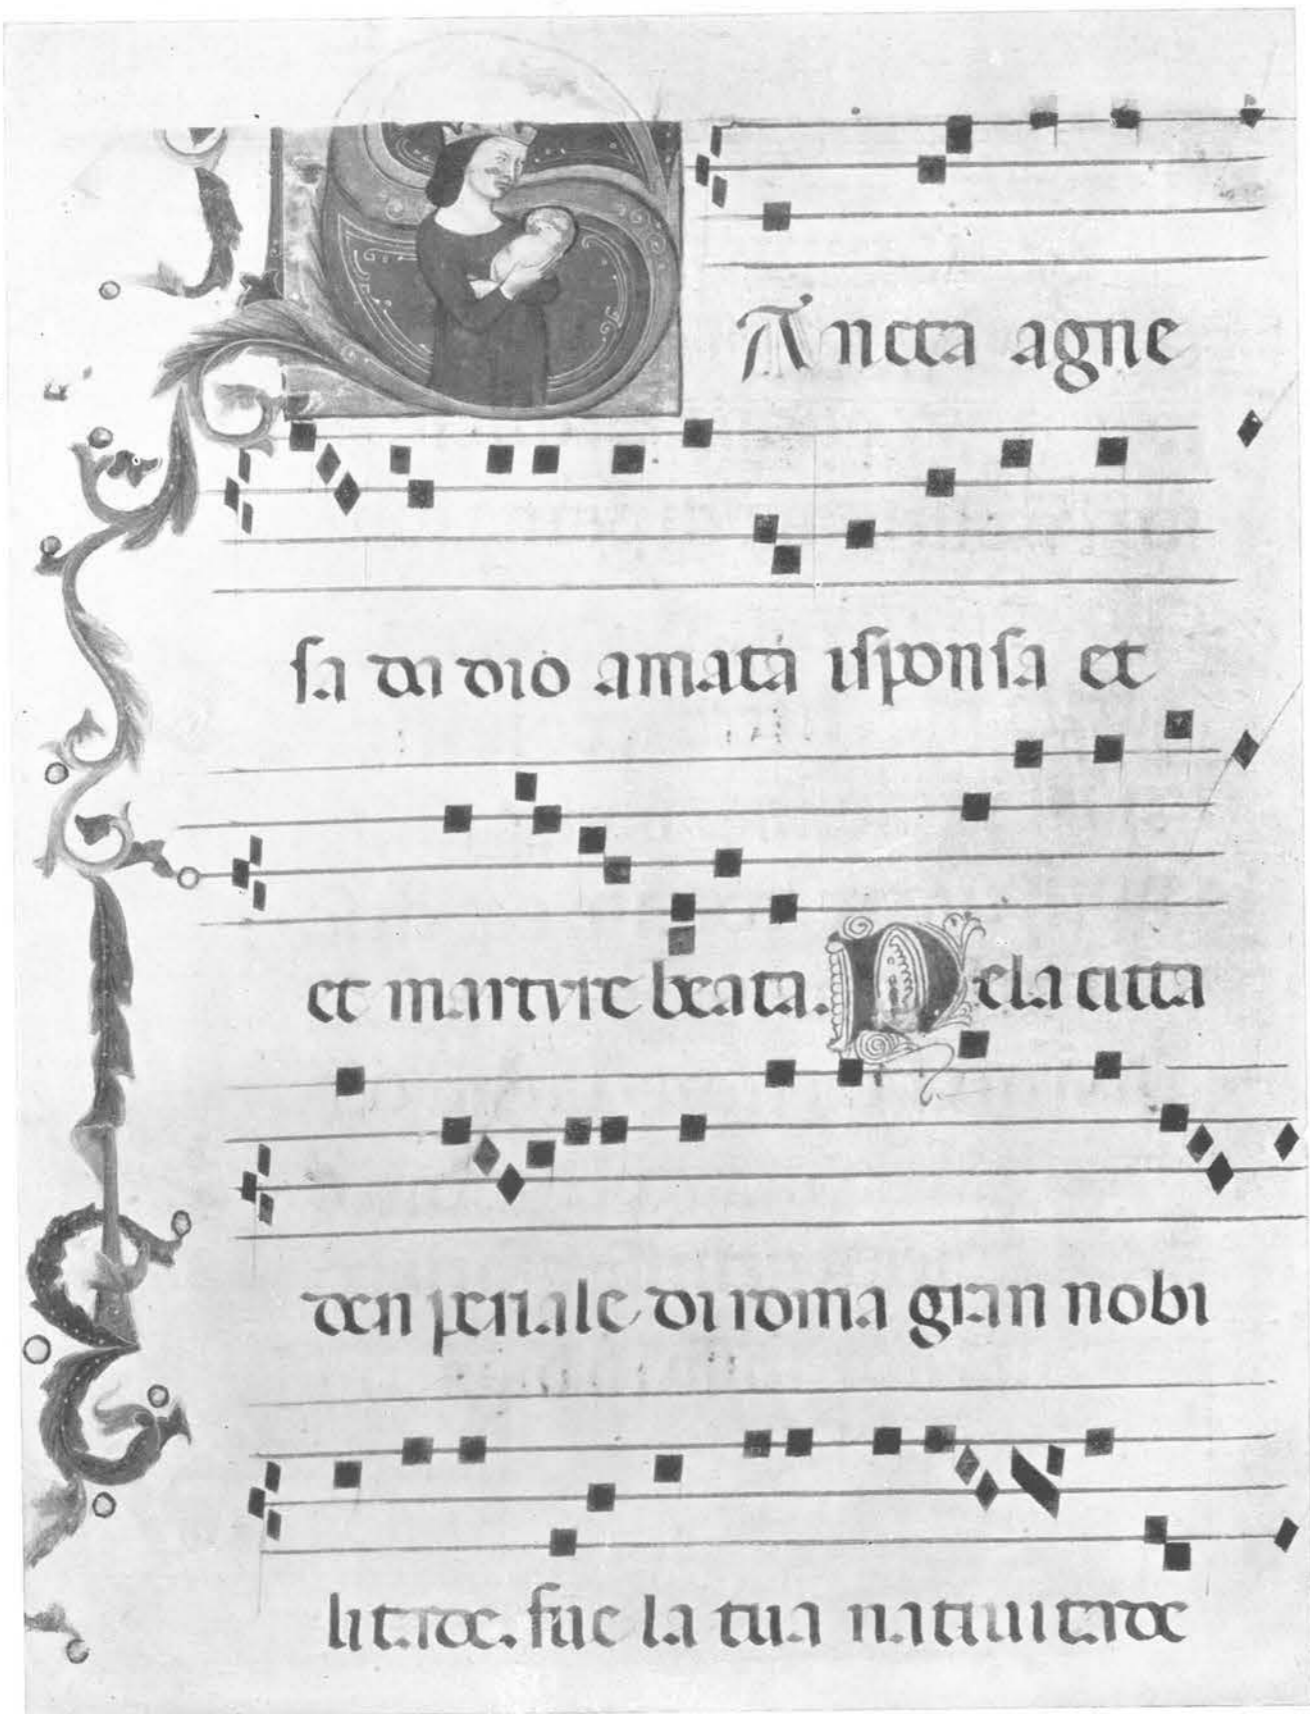 SAncta agne
sa da dio amata isponsa et
et martyre beata. Dela citta
den periale di roma gran nobi
litade. fue la tua natiuitade